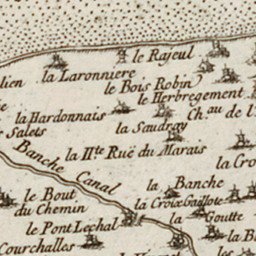 le Rajeul
lien
la Laronniere
le Bois Robin
le Herbregement
la Hardonnais
Ch.au de l
Salets
la Saudray
la H.te Ruë du Marais
la Cro
Banche Canal
la Banche
le Bout
du Chemin
la Croix Gaillote
la Goutte
le Pont Lechal
la B
Courchalles
les